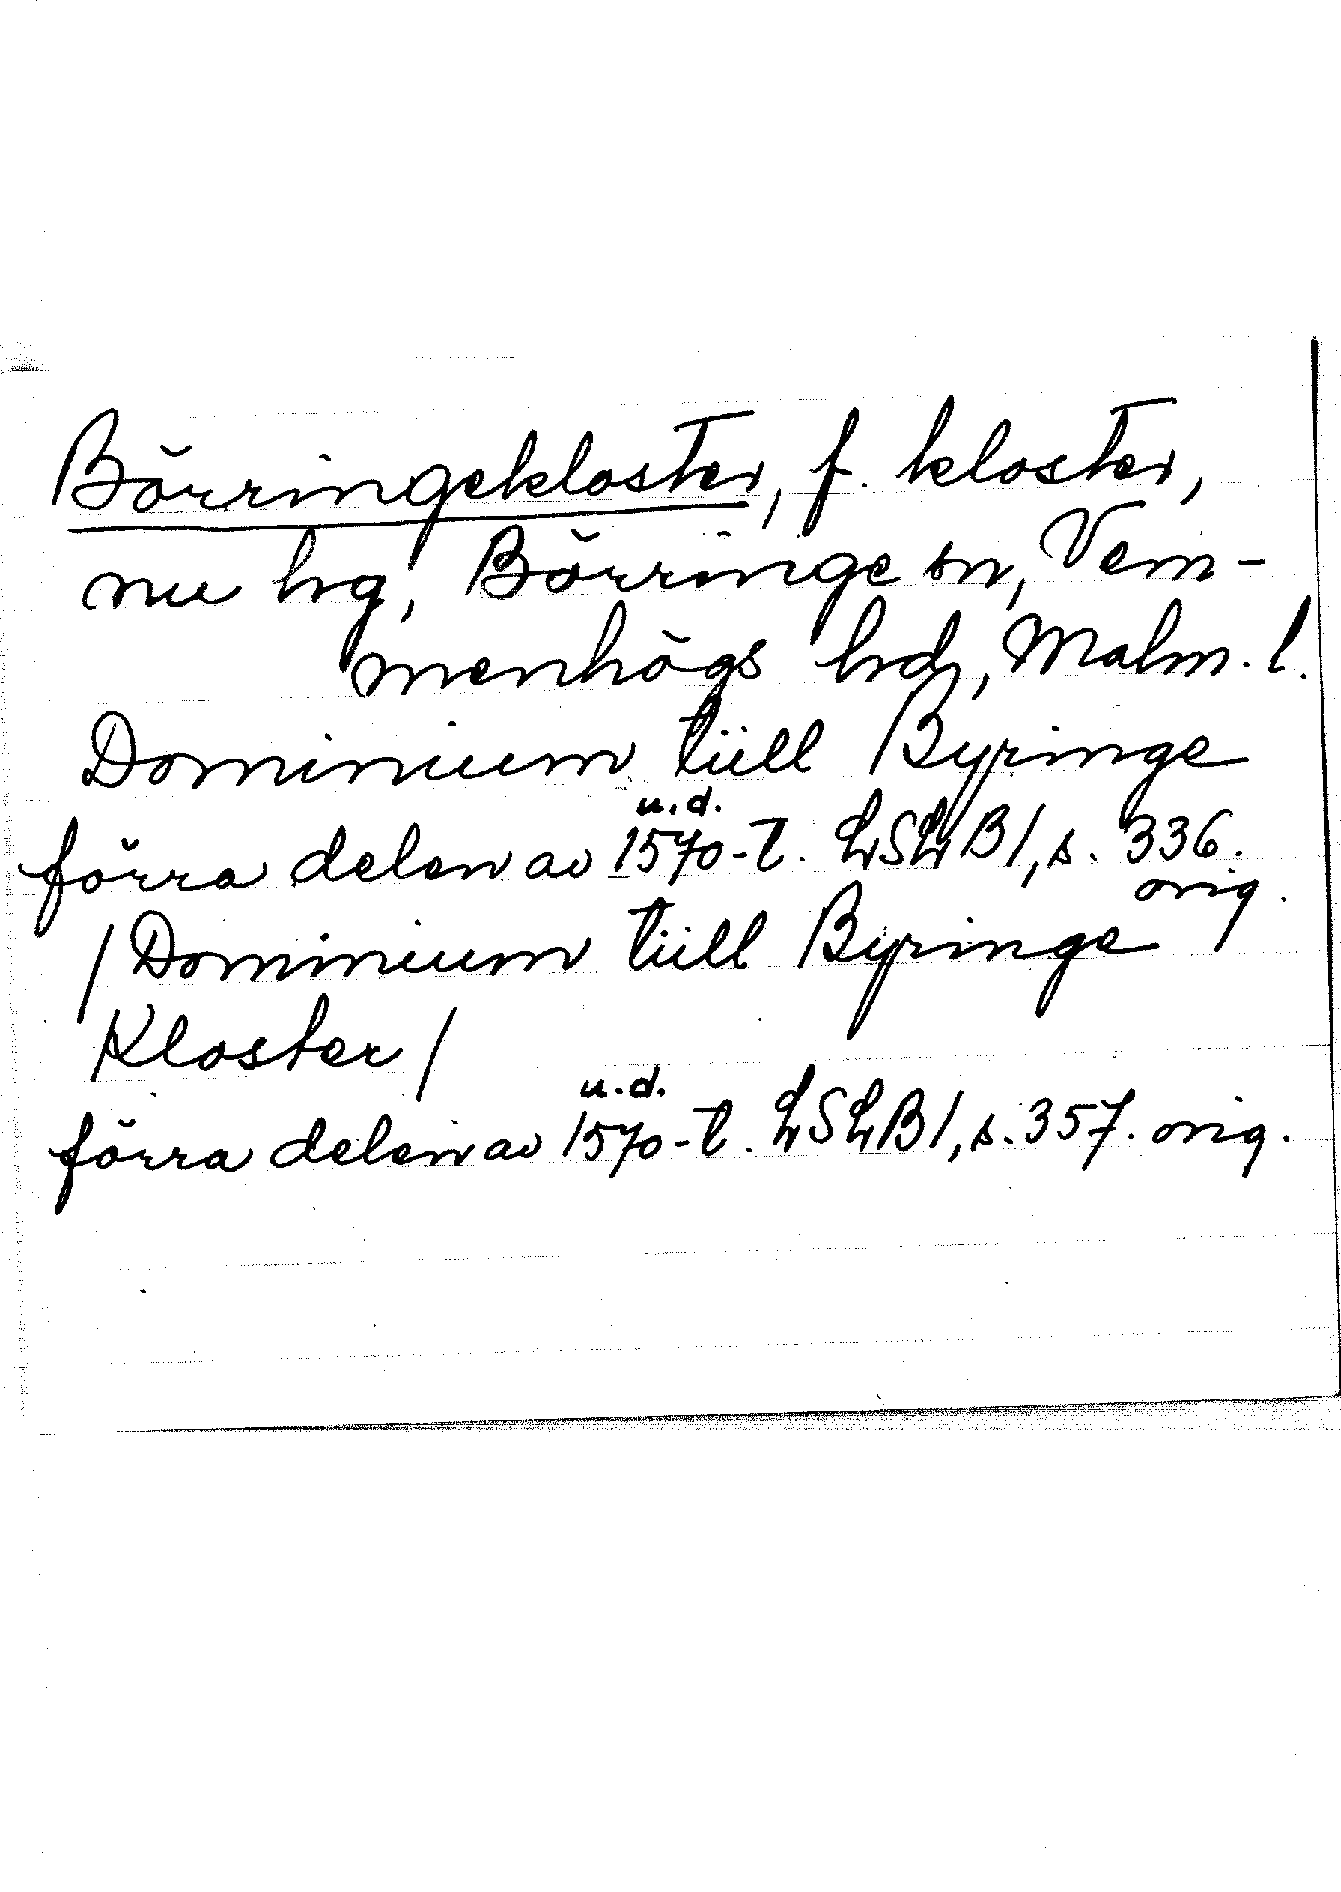 Börringekloster, f. kloster,
nu hrg, Börringe sn, Vem-
menhögs hrd, Malm. l.
Dominium tiill Byringe
u.d.
förra delen av 1570-t. LSLB1, s. 336.
orig.
/Dominium tiill Byringe
Kloster/
u.d.
förra delen av 1570-t. LSLB1, s. 357. orig.